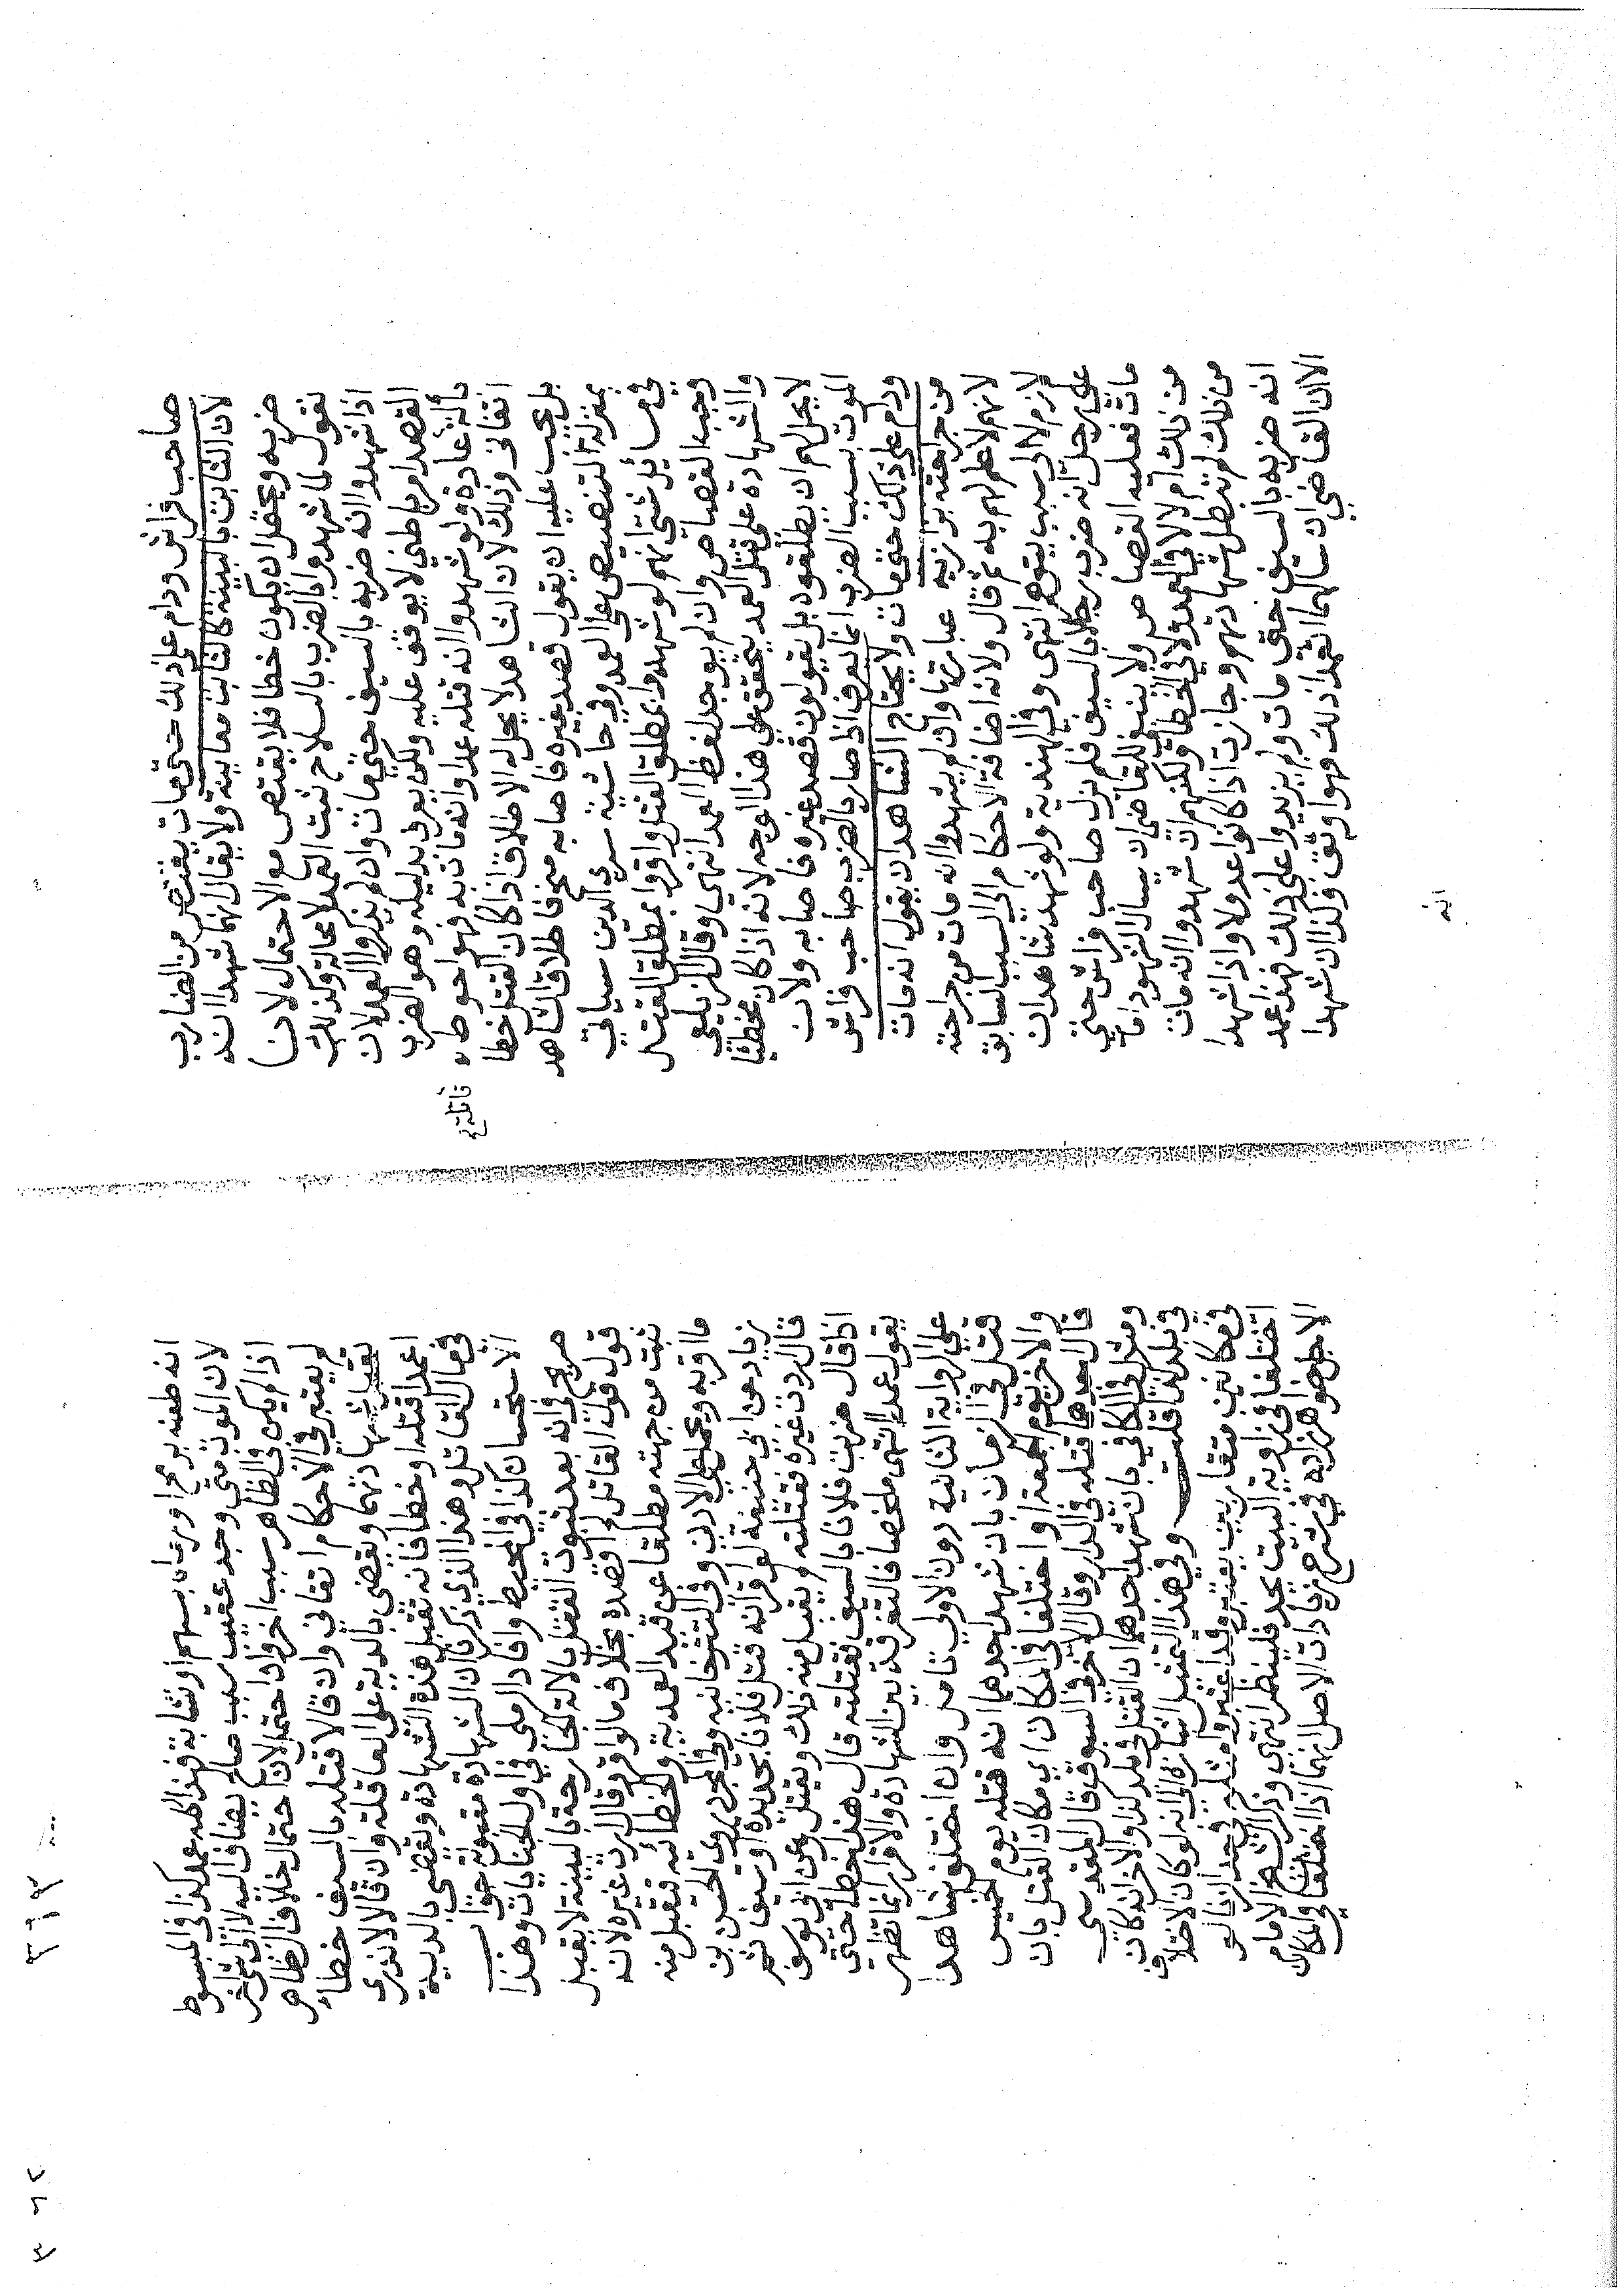 صاحب فراش ودام على ذلك حتى مات يقتص من الضارب
لان الثابت بالبينة كالثابت معاينة ولا يقال انهما شهدا انه
ضربه ويحتمل ان يكون خطا فلا يقتص مع الاحتمال لانا
نقول لما شهدوا بالضرب بالسلاح ثبت العمد لا محالة وكذلك
اذا شهدوا انه ضربه بالسيف حتي مات وان لم يذكروا العمد لان
القصد امر باطني لا يوقف عليه ولكن يعرف بدليله وهو الضرب
بآلة عادة ولو شهدوا انه قتله عمدا وانه مات به فهو احوط
اتقاني وذلك لان الشاهد لا يحل له الاطلاق اذا كان القتل خطا
بل يجب عليه ان يقول قصد غيره فاصابه منح فاطلاق الشاهد
بمنزلة التنصيص على العمد وفي حاشية سري الدين سياتي
في مسائل شتي انهم لو شهدوا بمطلق القتل او اقروا بمطلق القتل
وجب القصاص وان لم يوجد لفظ العمد انتهي وقال الزيلعي
والشهادة على قتل العمد يتحقق علي هذا الوجه لانه اذا كان مخطئا
لا يحل لهم ان يطلقوه بل يقولون قصد غيره فاصابه ولان
الموت بسبب الضرب انما يعرف اذا صار بالضرب صاحب فراش
ودام على ذلك حتى مات ولا يحتاج الشاهد ان يقول انه مات
من جراحته بزازيه عبارتها وان لم يشهدوا انه مات من جراحته
لانهم لا علم لهم به ثم قال ولانه اضافة الاحكام الى السبب السابق
لازم لا الى سبب يتوهم انتهى وفي الهندية ولو شهد شاهدان
على رجل انه ضرب رجلا بالسيف فلم يزل صاحب فراش حتي
مات فعليه القصاص ولا ينبغي للقاضي ان يسال الشهود امات
من ذلك ام لا لا في العمد ولا في الخطا ولكنهم ان شهدوا انه مات
من ذلك لم تبطل شهادتهم وجازت اذا كانوا عدولا واذا شهدا
انه ضربه بالسيف حتى مات ولم يزيدوا على ذلك فهذا عمد
الا ان القاضي ان سالهما اتعمد ذلك فهو اوثق وكذا ان شهدا
انه
انه طعنه برمح او رماه بسهم او نشابة فهذا كله عمد كذا في المبسوط
لان الموت متي وجد عقيب سبب صالح يضاف اليه لا الى شي اخر
اذا لم يكن في الظاهر سبب اخر واذا احتمل لان احتمال خلاف الظاهر
لم يعتبر في الاحكام اتقاني وان قالا قتله بالسيف خطا
تقبل شهادتهما ويقضي بالدية على العاقلة وان قالا لا ندري
اعمدا قتله او خطا فانه تقبل هذه الشهادة ويقضي بالدية
في مال القاتل وهذا الذي ذكرنا ان الشهادة مقبولة جواب
الاستحسان كذا في المحيط وافاد الرملي في اول الجنايات وهذا
صريح في انه بعد ثبوت القتل بالآلة الجارحة بالبينة لا يقبل
قول قول القاتل لم اقصده بخلاف ما لو اقر وقال اردت غيره لانه
ثبت من جهته مطلقا عن قيد العمدية والخطائه فتقبل منه
ما اقر به ويحمل على الادني وفي التترخانيه وفي المجرد روى الحسن بن
زياد عن ابي حنيفة لو اقر انه قتل فلانا بحديدة او سيف ثم
قال اردت غيره فقتلته لم يقبل منه ذلك ويقتل وعن ابي يوسف
اذا قال ضربت فلانا بالسيف فقتلته قال هذا خطا حتي
يقول عمدا انتهى ملخصا فالتفرقة بين الشهادة والاقرار انما تظهر
علي الرواية الثانية دون الاولي تامل وان اختلف شاهدا
قتل في الزمان بان شهد احدهما انه قتله يوم الخميس
والاخر يوم الجمعة او اختلفا في المكان اي مكان القتل بان
قال احدهما قتله في الدار وقال الاخر في السوق قال المقدسي
ومثل في الكافي بان شهد احدهما ان القتل في بلد كذا والاخر انه كان
في بلد كذا قلت وفي هذا التمثيل اشارة الى انه لو كان الاختلاف
في مكانين متقاربين يعتبر وقد اعتبروا مثله في حد الزنا لو
اختلفا في زاوية البيت يحد فلينظر انتهى وذكر الشيخ الامام
الاجل خواهرزاده في شرح زيادات الاصل انهما اذا اختلفا في المكان